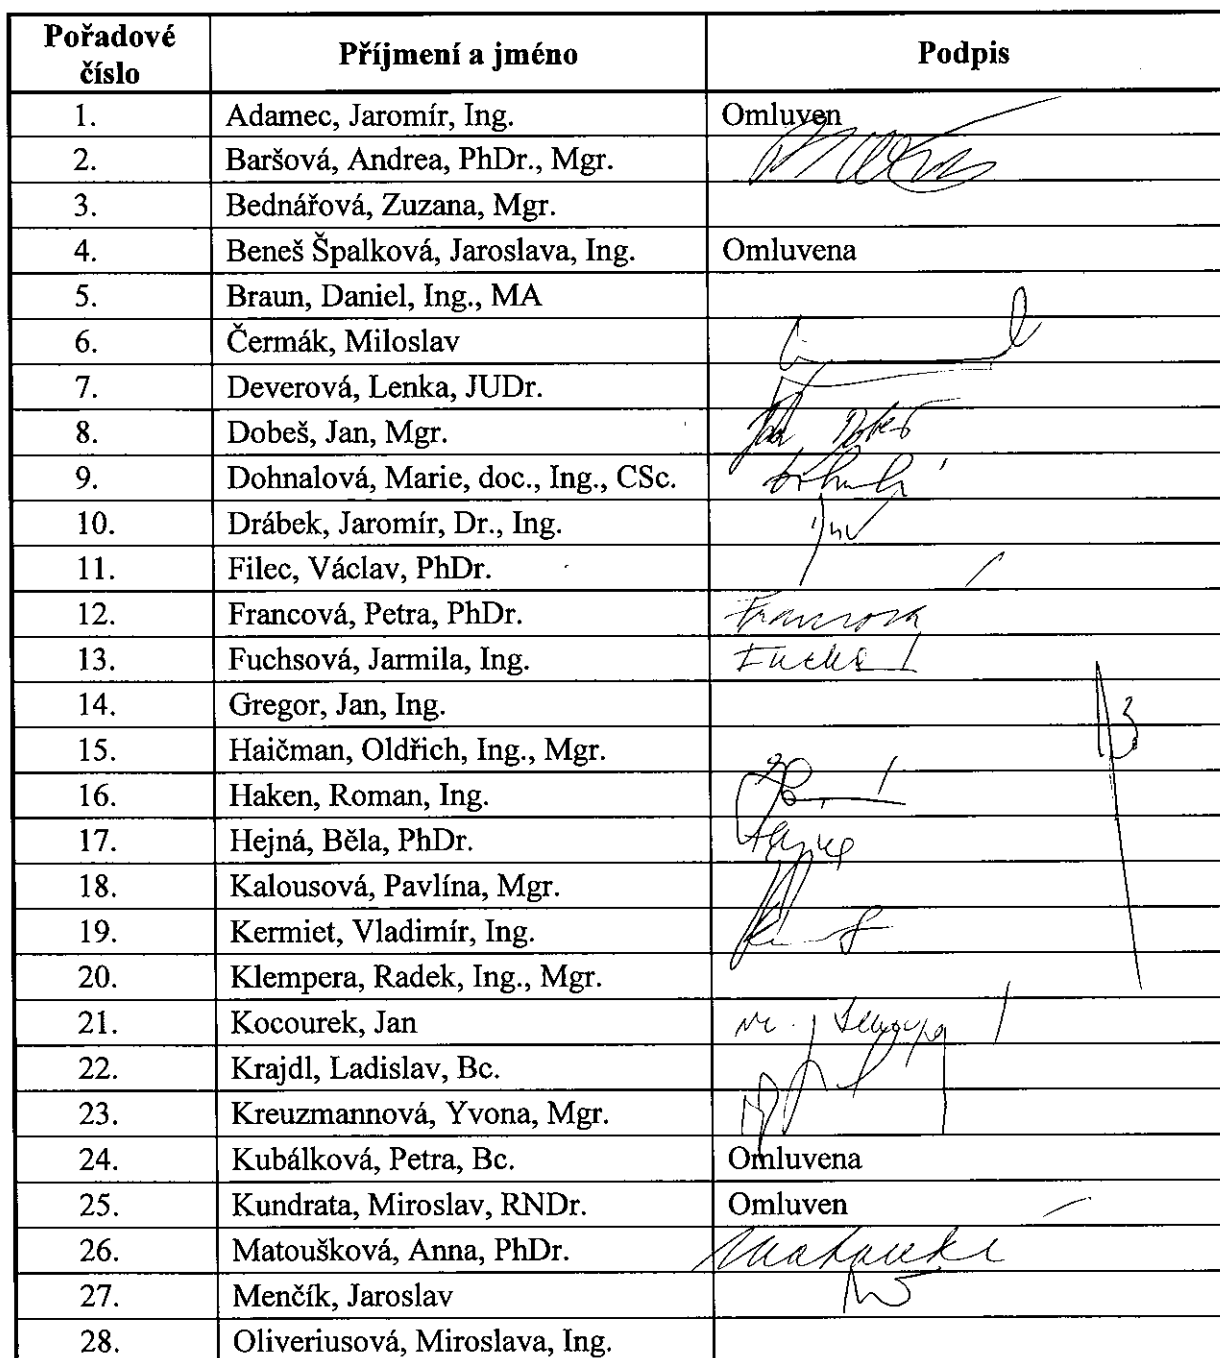 Pořadové číslo Příjmení a jméno Podpis
1. Adamec, Jaromír, Ing. Omluven
2. Baršová, Andrea, PhDr., Mgr.
3. Bednářová, Zuzana, Mgr.
4. Beneš Špalková, Jaroslava, Ing. Omluvena
5. Braun, Daniel, Ing., MA
6. Čermák, Miloslav
7. Deverová, Lenka, JUDr.
8. Dobeš, Jan, Mgr. Jan Dobeš
9. Dohnalová, Marie, doc., Ing., CSc.
10. Drábek, Jaromír, Dr., Ing.
11. Filec, Václav, PhDr.
12. Francová, Petra, PhDr. Francová
13. Fuchsová, Jarmila, Ing.
14. Gregor, Jan, Ing.
15. Haičman, Oldřich, Ing., Mgr.
16. Haken, Roman, Ing.
17. Hejná, Běla, PhDr.
18. Kalousová, Pavlína, Mgr.
19. Kermiet, Vladimír, Ing.
20. Klempera, Radek, Ing., Mgr.
21. Kocourek, Jan
22. Krajdl, Ladislav, Bc.
23. Kreuzmannová, Yvona, Mgr.
24. Kubálková, Petra, Bc. Omluvena
25. Kundrata, Miroslav, RNDr. Omluven
26. Matoušková, Anna, PhDr.
27. Menčík, Jaroslav
28. Oliveriusová, Miroslava, Ing.